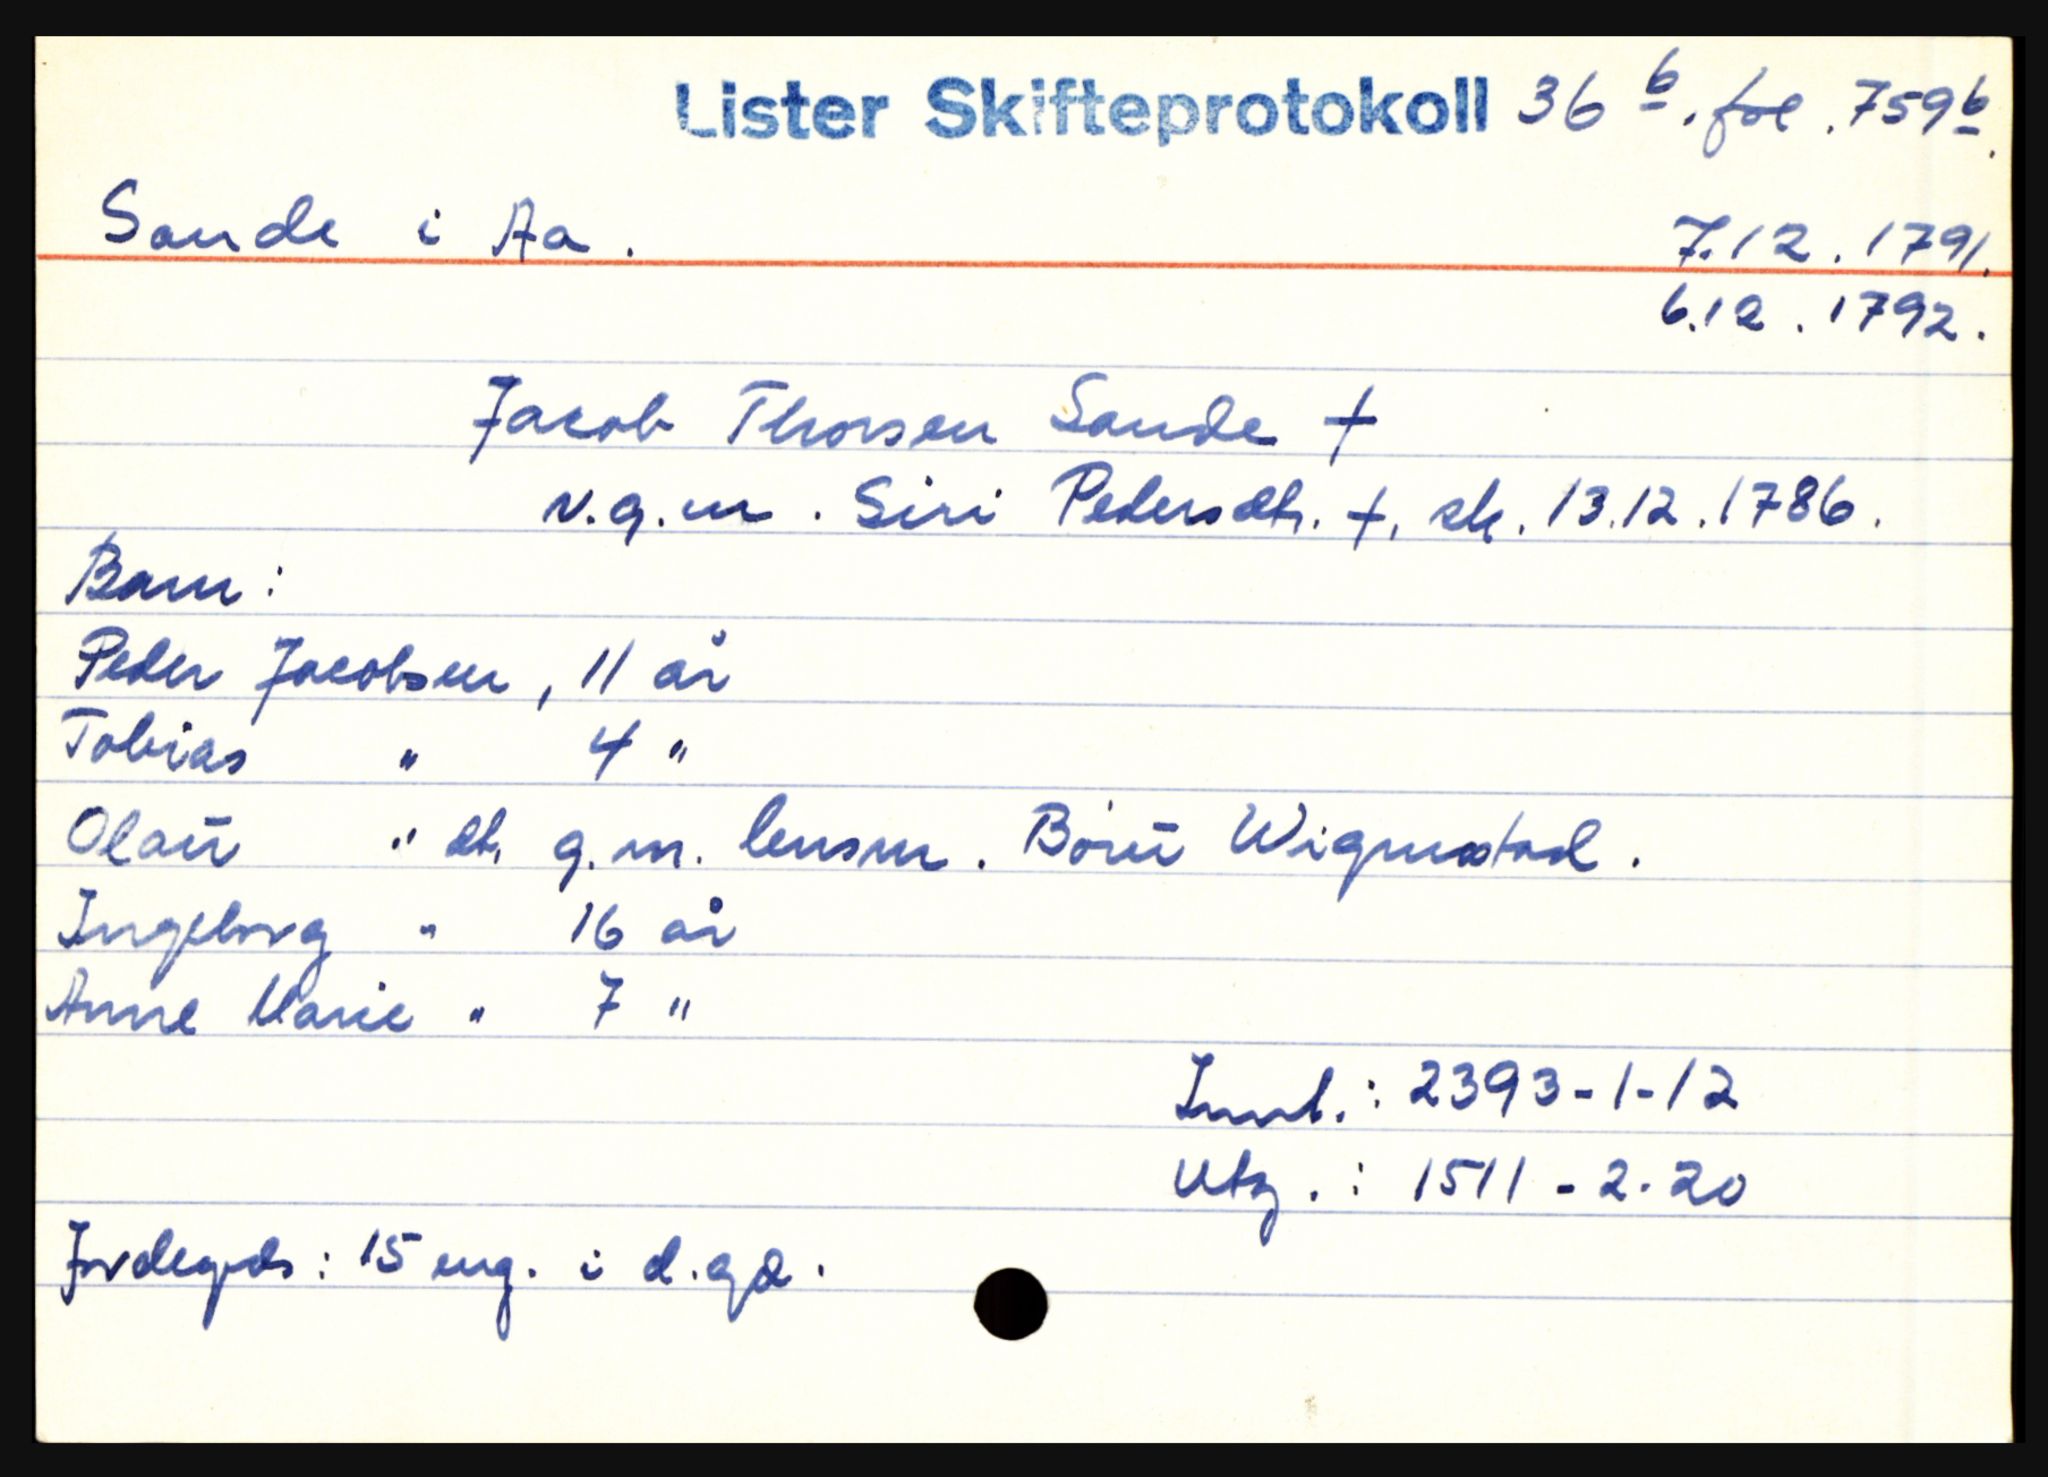 Lister Skifteprotokoll 36 b. fol. 759 b.
Sande i Aa. 7.12.1791.
6.12.1792.
Jacob Thorsen Sande †
v.g.m. Siri Pedersdt. †, sk. 13.12.1786.
Barn:
Peder Jacobsen, 11 år
Tobias " 4 "
Olau " dt. g.m. lensm. Börü Wigmostad.
Ingeborg " 16 år
Anne Marie " 7 "
Innt.: 2393-1-12
Utg.: 1511-2-20
Jordegds: 15 eng. i d. gd.